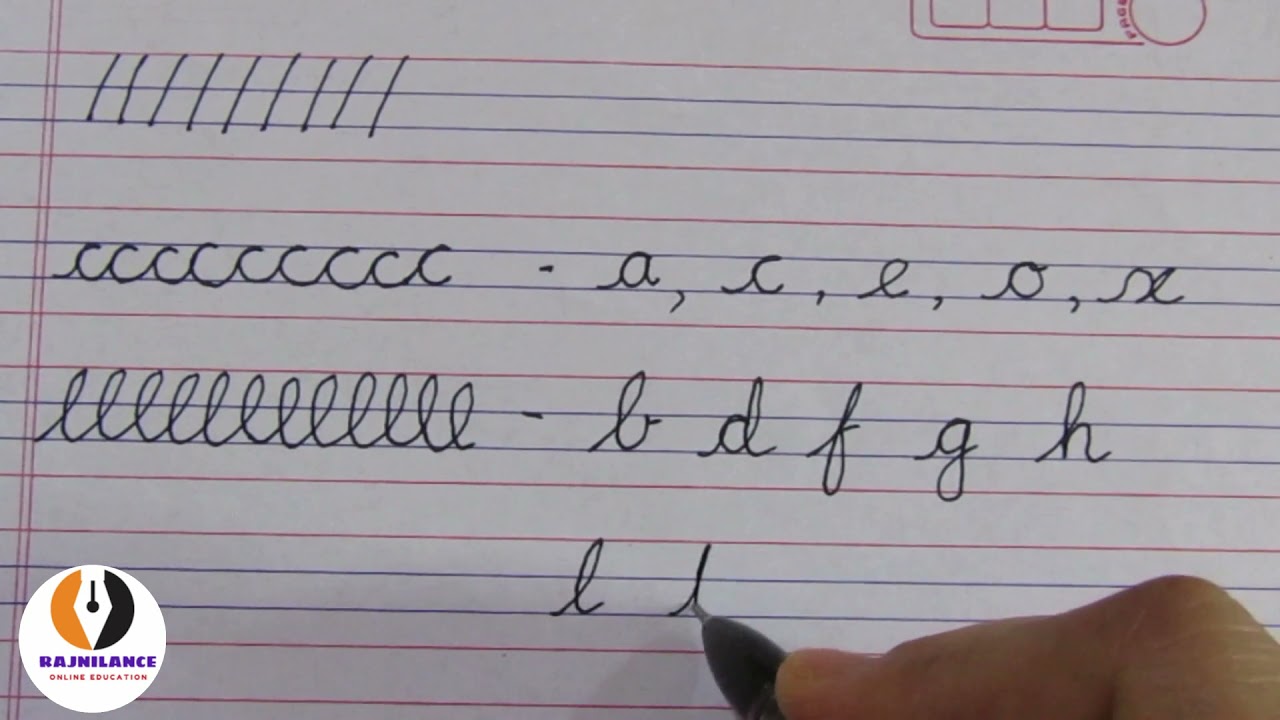 PAGE
/////////
ccccccccc - a, c, e, o, x
llllllllllll - b d f g h
l
RAJNILANCE
ONLINE EDUCATION